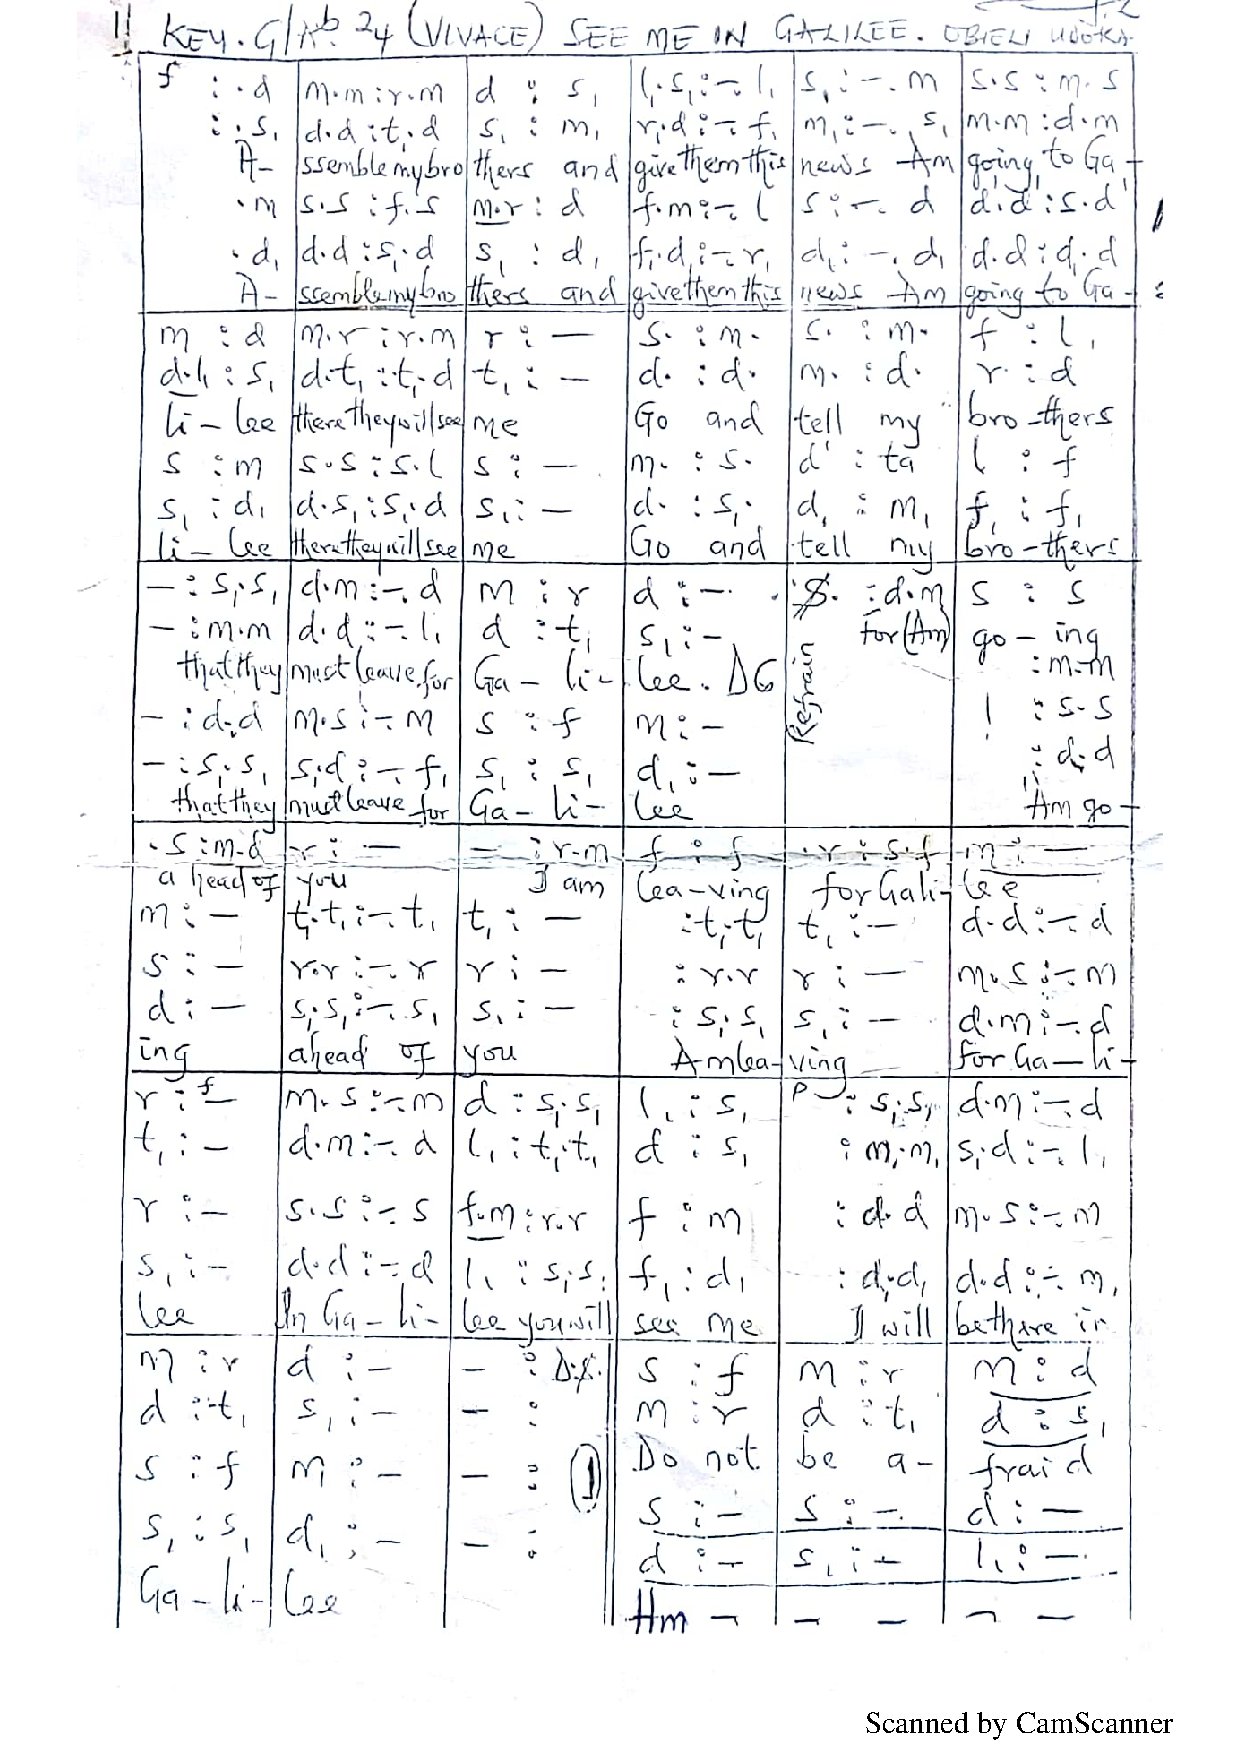 KEY. G/Ab. 2/4 (VIVACE) SEE ME IN GALILEE. OBIELI UDOKA
f : . d | m.m : r.m | d : s, | l,.s, :-. l, | s, :-. m | s.s : m.s
: . s, | d.d : t,.d | s, : m, | r,.d, :-. f, | m, :-. s, | m.m : d.m
A- | ssemble my bro | thers and | give them this | news Am | going to Ga-
. m | s.s : f.s | m.r : d | f.m :-. l | s :-. d | d'.d' : s.d'
. d, | d.d : s,.d | s, : d, | f,.d, :-. r, | d, :-. d, | d.d : d,.d
A- | ssemble my bro | thers and | give them this | news Am | going to Ga-
m : d | m.r : r.m | r : — | s. : m. | s. : m. | f : l,
d.l, : s, | d.t, : t,.d | t, : — | d. : d. | m. : d. | r : d
li - lee | there they will see | me | Go and | tell my | bro-thers
s : m | s.s : s.l | s : — | m. : s. | d' : ta | l : f
s, : d, | d.s, : s,.d | s, : — | d. : s,. | d, : m, | f, : f,
li - lee | there they will see | me | Go and | tell my | bro-thers
— : s,.s, | d.m :-. d | m : r | d : —. | S. : d.m | s : s
— : m.m | d.d :-. l, | d : t, | s, : — | for (Am) | go - ing
that they | must leave for | Ga - li - | lee. DC | Refrain | : m.m
— : d.d | m.s :-. m | s : f | m : — | | : s.s
— : s,.s, | s,.d :-. f, | s, : s, | d, : — | | : d.d
that they | must leave for | Ga - li - | lee | | Am go -
. s : m.d | r : — | — : r.m | f : f | . r : s.f | m : —
a head of | you | I am | lea-ving | for Gali- | lee
m : — | t,.t, :-. t, | t, : — | : t,.t, | t, : — | d.d :-. d
s : — | r.r :-. r | r : — | : r.r | r : — | m.s :-. m
d : — | s,.s, :-. s, | s, : — | : s,.s, | s, : — | d.m :-. d
ing | ahead of | you | Am lea- | ving | for Ga - li -
r : f — | m.s :-. m | d : s,.s, | l, : s, | p : s,.s, | d.m :-. d
t, : — | d.m :-. d | l, : t,.t, | d : s, | : m,.m, | s,.d :-. l,
r : — | s.s :-. s | f.m : r.r | f : m | : d.d | m.s :-. m
s, : — | d.d :-. d | l, : s,.s, | f, : d, | : d,.d, | d.d :-. m,
lee | In Ga - li - | lee you will | see me | I will | be there in
m : r | d : — | — : D.S. | s : f | m : r | m : d
d : t, | s, : — | — : | m : r | d : t, | d : s,
s : f | m : — | — : (1) | Do not | be a- | fraid
s, : s, | d, : — | — : | s : — | s : —. | d : —
Ga - li - | lee | | d : — | s, : — | l, : —.
Hm - | - - | - -
Scanned by CamScanner